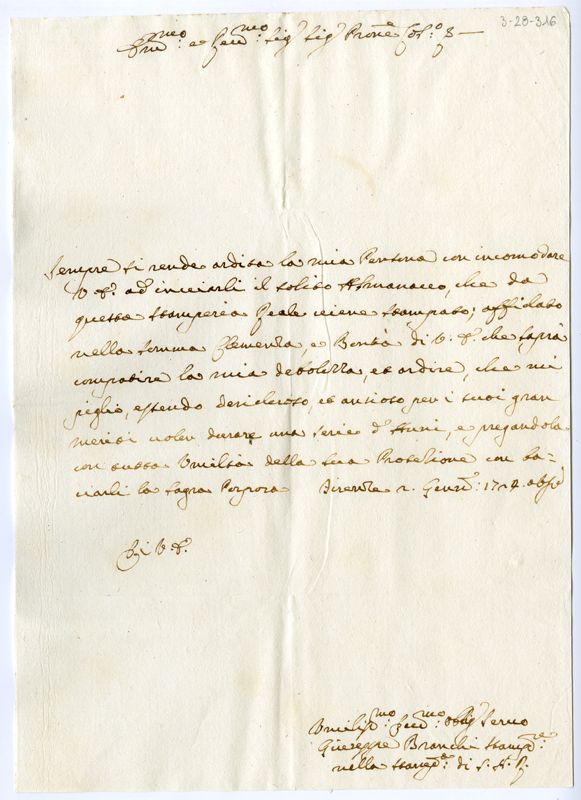 3-28-316
Em̃mo: e Reumo: Sig: Sig: Prone Col:o
Sempre si rende ardita la mia Persona con incomodare
V. E. ad inuiarli il solito Almanacco, che da
questa Stamperia Reale uiene stampato; affidato
nella somma Clemenza, e Bontà di V. E. che saprà
compatire la mia debolezza, et ardire, che mi
piglio, essendo desideroso, et ansioso per i suoi gran
meriti uoler durare una serie d'Anni, e pregandola
con tutta Umiltà della sua Protezione con ba-
ciarli la Sagra Porpora Firenze 2. Genn:o:
Di V. E.
Umilissmo: Deumo: Obblig: Seruo
Giuseppe Bianchi Stampre:
nella Stampa: di S. A. R.